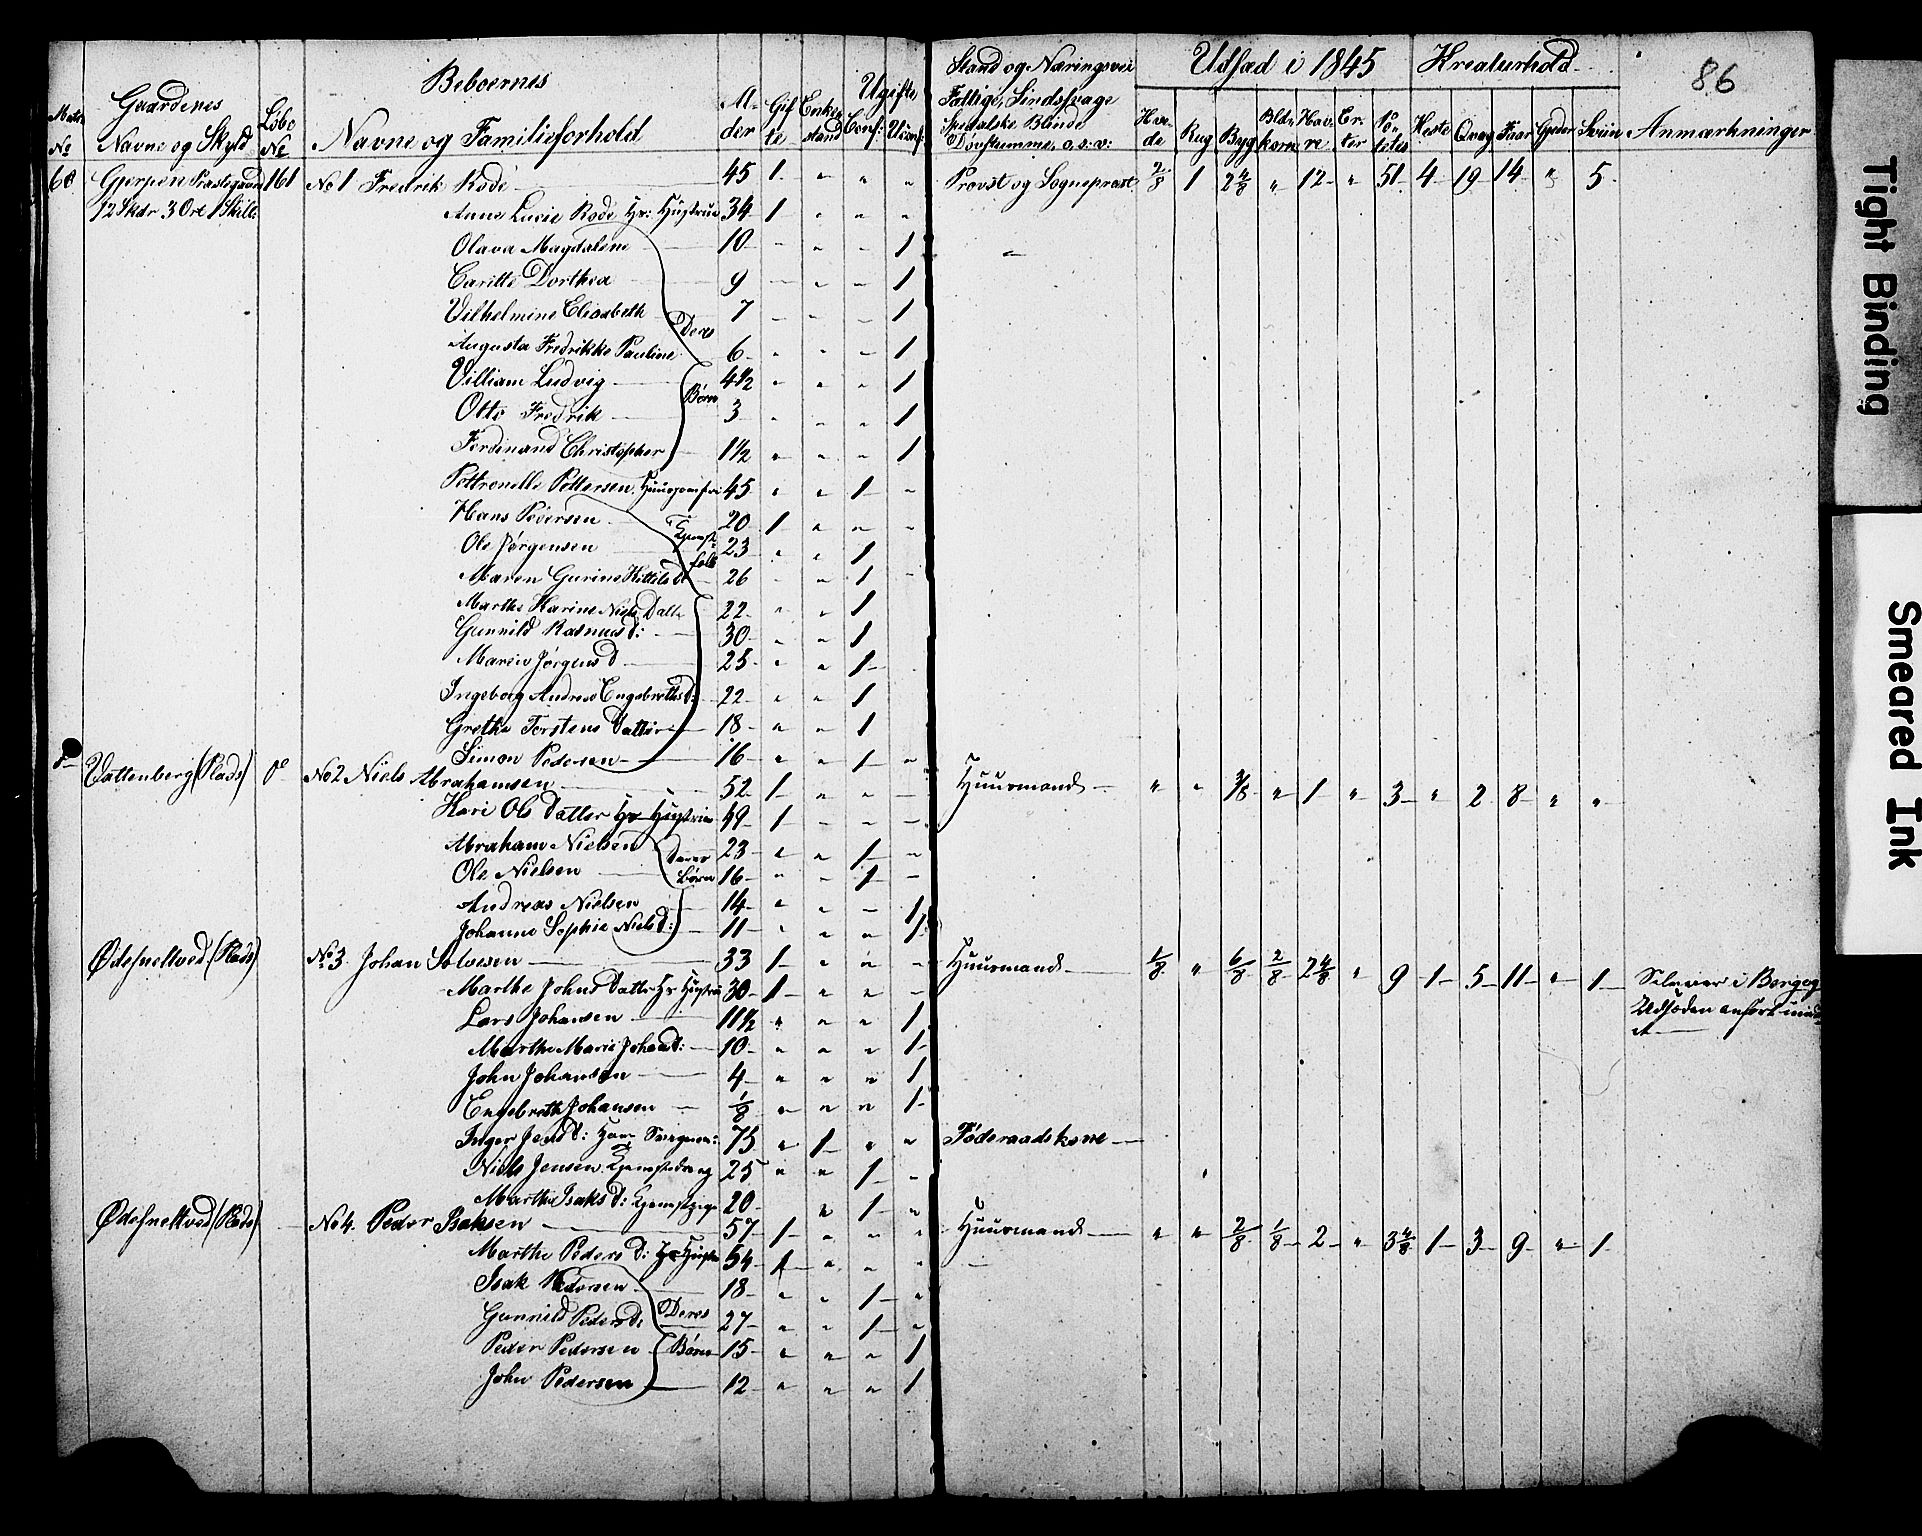 86
Matr No | Gaardenes Navne og Skyld | Løbe No | Beboernes Navne og Familieforhold | Al- der | Gif te | Enke stand | Ugifte Conf: | Uconf: | Stand og Næringsvei Fattige, Sindssvage Spedalske Blinde Døvstumme, o.s.v: | Udsæd i 1845 Hve- de | Rug | Byg | Bldn korn | Hav- re | Er- ter | Po- tetes | Kreaturhold Heste | Qvæg | Faar | Gjeder | Sviin | Anmærkninger
60 | Gjerpen Præstegaard | 161 | No 1 Fredrik Rode | 45 | 1 | " | " | " | Provst og Sognepræst | 2/8 | 1 | 2 4/8 | " | 12 | " | 51 | 4 | 19 | 14 | " | 5
12 Skdr 3 Ort 1 Skill: | Anne Lucie Rode Hs: Hustrue | 34 | 1 | " | " | "
Olava Magdalene | 10 | " | " | " | 1
Caritte Dorthea | 9 | " | " | " | 1
Vilhelmine Elisabeth | 7 | " | " | " | 1
Deres
Augusta Fredrikke Pauline | 6 | " | " | " | 1
Villiam Ludvig | 4 1/2 | " | " | " | 1
Børn
Otto Fredrik | 3 | " | " | " | 1
Ferdinand Christopher | 1 1/2 | " | " | " | 1
Pettronelle Pettersen Huusjomfru | 45 | " | " | 1 | "
Hans Pedersen | 20 | 1 | " | " | "
Tjenstfolk
Ole Jørgensen | 23 | " | " | 1
Maren Gurine Kittilsd | 26 | " | " | 1 | "
Marthe Karine Niels Datt | 22 | " | " | 1
Gunnild Rasmusd: | 30 | " | " | 1
Maren Jørgensd | 25 | " | " | 1
Ingeborg Andrea Engebrethsd: | 22 | " | " | 1
Grethe Torstens Datter | 18 | " | " | 1
Simon Pedersen | 16 | " | " | 1 | "
Vattenberg (Plads) | do | No 2 Niels Abrahamsen | 52 | 1 | " | " | " | Huusmand | " | " | 3/8 | " | 1 | " | 3 | " | 2 | 8 | " | "
Kari Ols Datter Hs Hustrue | 49 | 1 | " | " | "
Abraham Nielsen | 23 | " | " | 1 | "
Deres Børn
Ole Nielsen | 16 | " | " | 1 | "
Andreas Nielsen | 14 | " | " | " | 1
Johanne Sophie Nielsd: | 11 | " | " | " | 1
Ødesneltved (Plads) | No 3 Johan Solvesen | 33 | 1 | " | " | " | Huusmand | 1/8 | " | 6/8 | 2/8 | 2 4/8 | " | 9 | 1 | 5 | 11 | " | 1
Marthe Johns Datter Hs Hustrue | 30 | 1 | " | " | "
Udsæden anført
Lars Johansen | 11 1/2 | " | " | " | 1
Marthe Marie Johansd: | 10 | " | " | " | 1
John Johansen | 4 | " | " | " | 1
Engebreth Johansen | 1/8 | " | " | " | 1
Inger Jensd: Hans | 75 | " | 1 | " | " | Føderaadskone
Niels Jensen Tjenstedreng | 25 | " | " | 1 | "
Marthe Isaksd: Tjenstpige | 20 | " | 1 | "
Ødesneltved (Plads) | No 4. Peder Isaksen | 57 | 1 | " | " | " | Huusmand | " | " | 2/8 | 1/8 | 2 | " | 3 4/8 | 1 | 3 | 9 | " | 1
Marthe Peders D: Hs Hustrue | 54 | 1 | " | " | "
Isak Pedersen | 18 | " | " | 1 | "
Gunnild Pedersd: | 27 | " | " | 1 | "
Deres Børn
Peder Pedersen | 15 | " | " | " | 1
John Pedersen | 12 | " | " | " | 1
Tight Binding
Smeared Ink